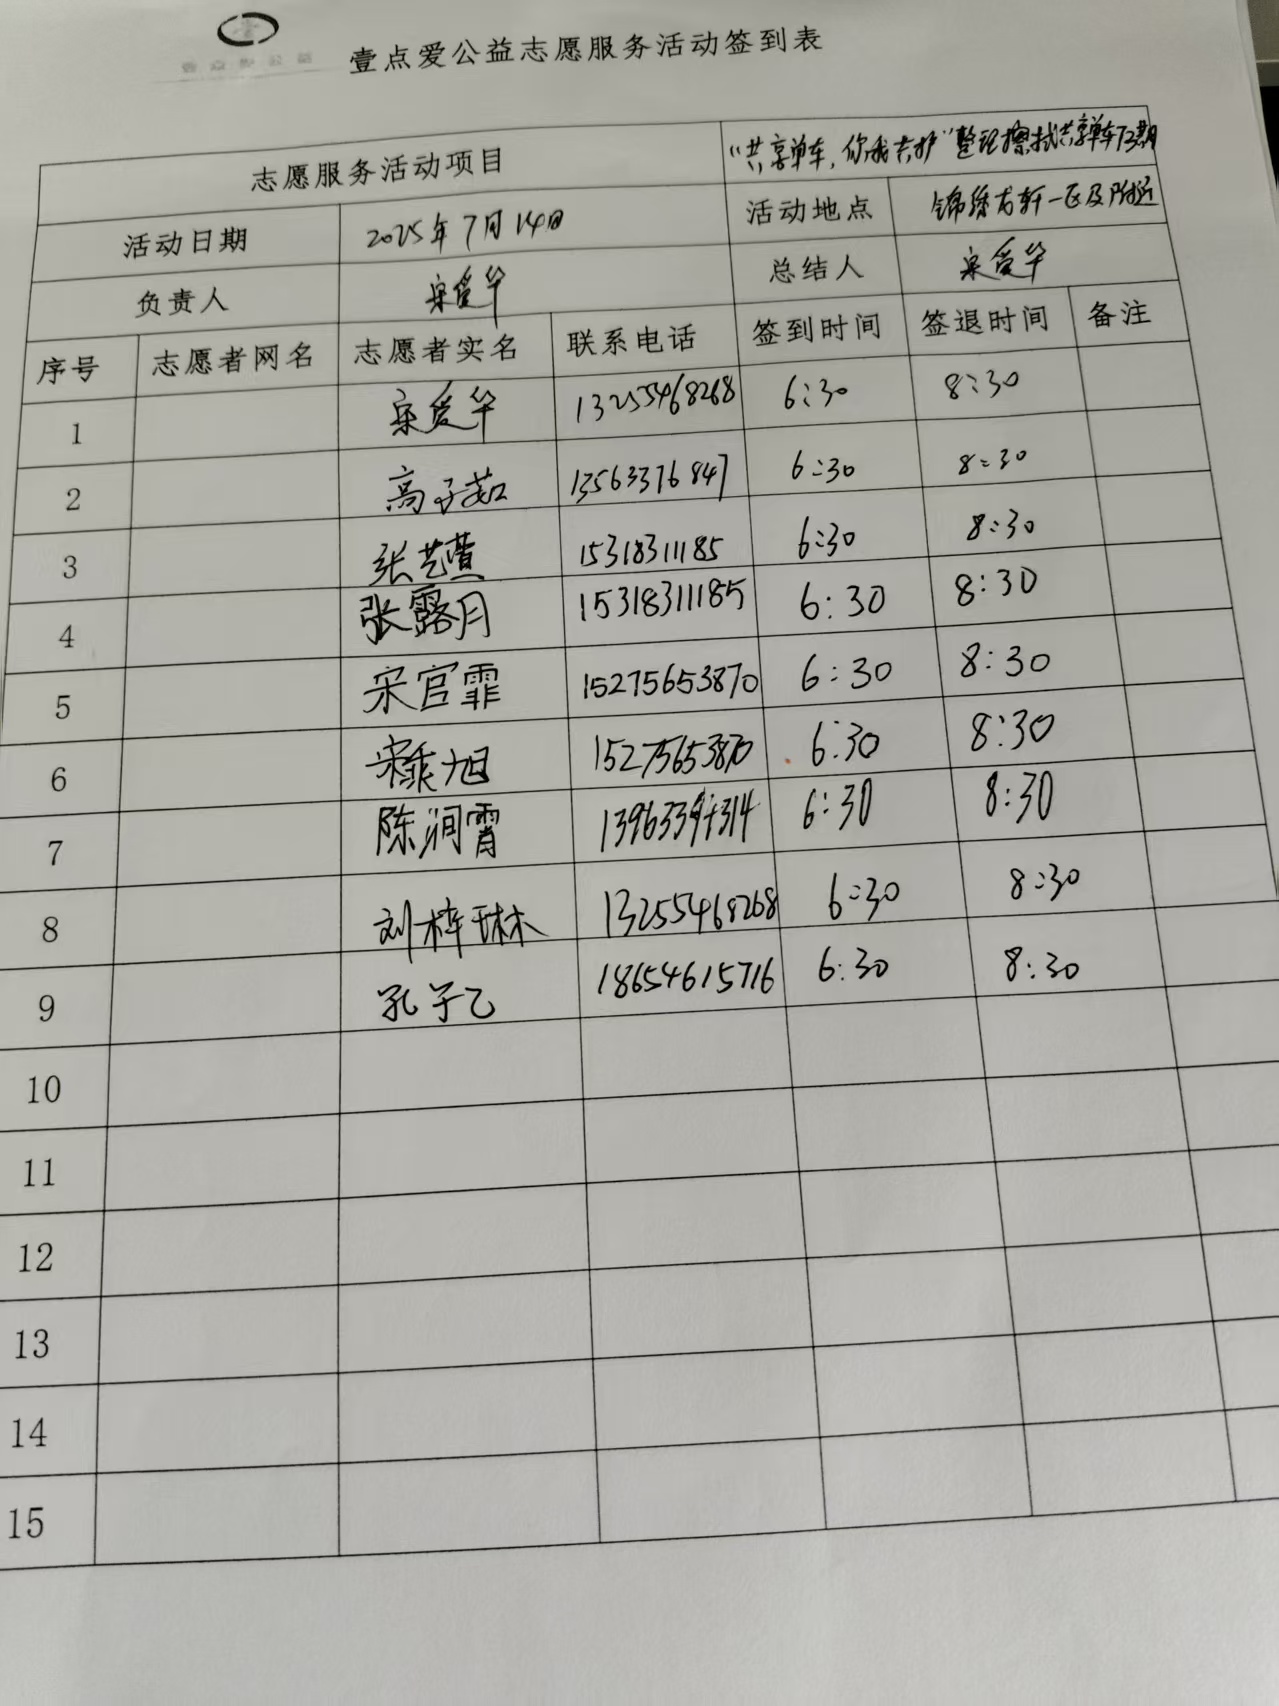 壹点爱公益志愿服务活动签到表
志愿服务活动项目 “共享单车,你我共护”整理擦拭共享单车73期
活动日期 2025年7月14日 活动地点 锦绣东轩一区及附近
负责人 宋爱华 总结人 宋爱华
序号 志愿者网名 志愿者实名 联系电话 签到时间 签退时间 备注
1 宋爱华 13255468268 6:30 8:30
2 高子茹 13563376847 6:30 8:30
3 张艺萱 15318311185 6:30 8:30
4 张露月 15318311185 6:30 8:30
5 宋官霏 15275653870 6:30 8:30
6 宋秉旭 15275653870 6:30 8:30
7 陈润霄 13963394314 6:30 8:30
8 刘梓琳 13255468268 6:30 8:30
9 孔子乙 18654615716 6:30 8:30
10
11
12
13
14
15